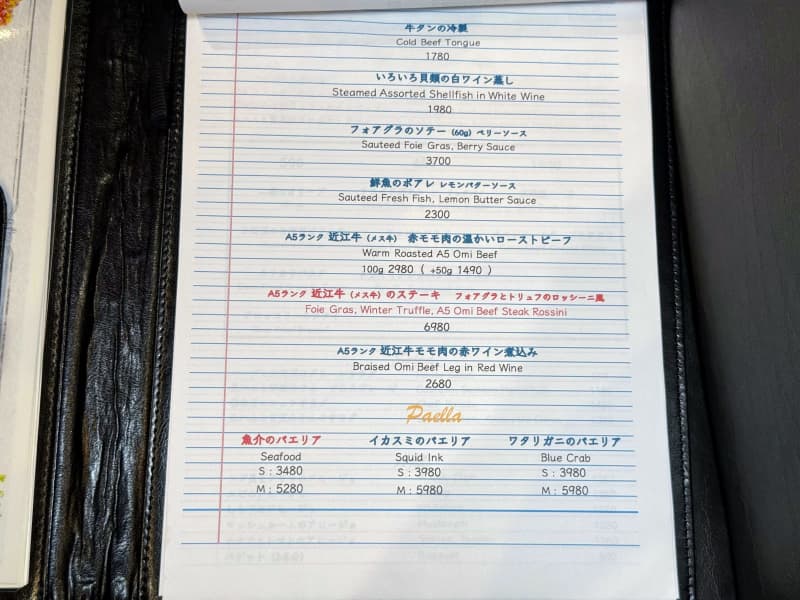 牛タンの冷製
Cold Beef Tongue
1780
いろいろ貝類の白ワイン蒸し
Steamed Assorted Shellfish in White Wine
1980
フォアグラのソテー (60g) ベリーソース
Sauteed Foie Gras, Berry Sauce
3700
鮮魚のポアレ レモンバターソース
Sauteed Fresh Fish, Lemon Butter Sauce
2300
A5ランク 近江牛 (メス牛) 赤モモ肉の温かいローストビーフ
Warm Roasted A5 Omi Beef
100g 2980 ( +50g 1490 )
A5ランク 近江牛 (メス牛) のステーキ フォアグラとトリュフのロッシーニ風
Foie Gras, Winter Truffle, A5 Omi Beef Steak Rossini
6980
A5ランク 近江牛モモ肉の赤ワイン煮込み
Braised Omi Beef Leg in Red Wine
2680
Paella
魚介のパエリア イカスミのパエリア ワタリガニのパエリア
Seafood Squid Ink Blue Crab
S : 3480 S : 3980 S : 3980
M : 5280 M : 5980 M : 5980